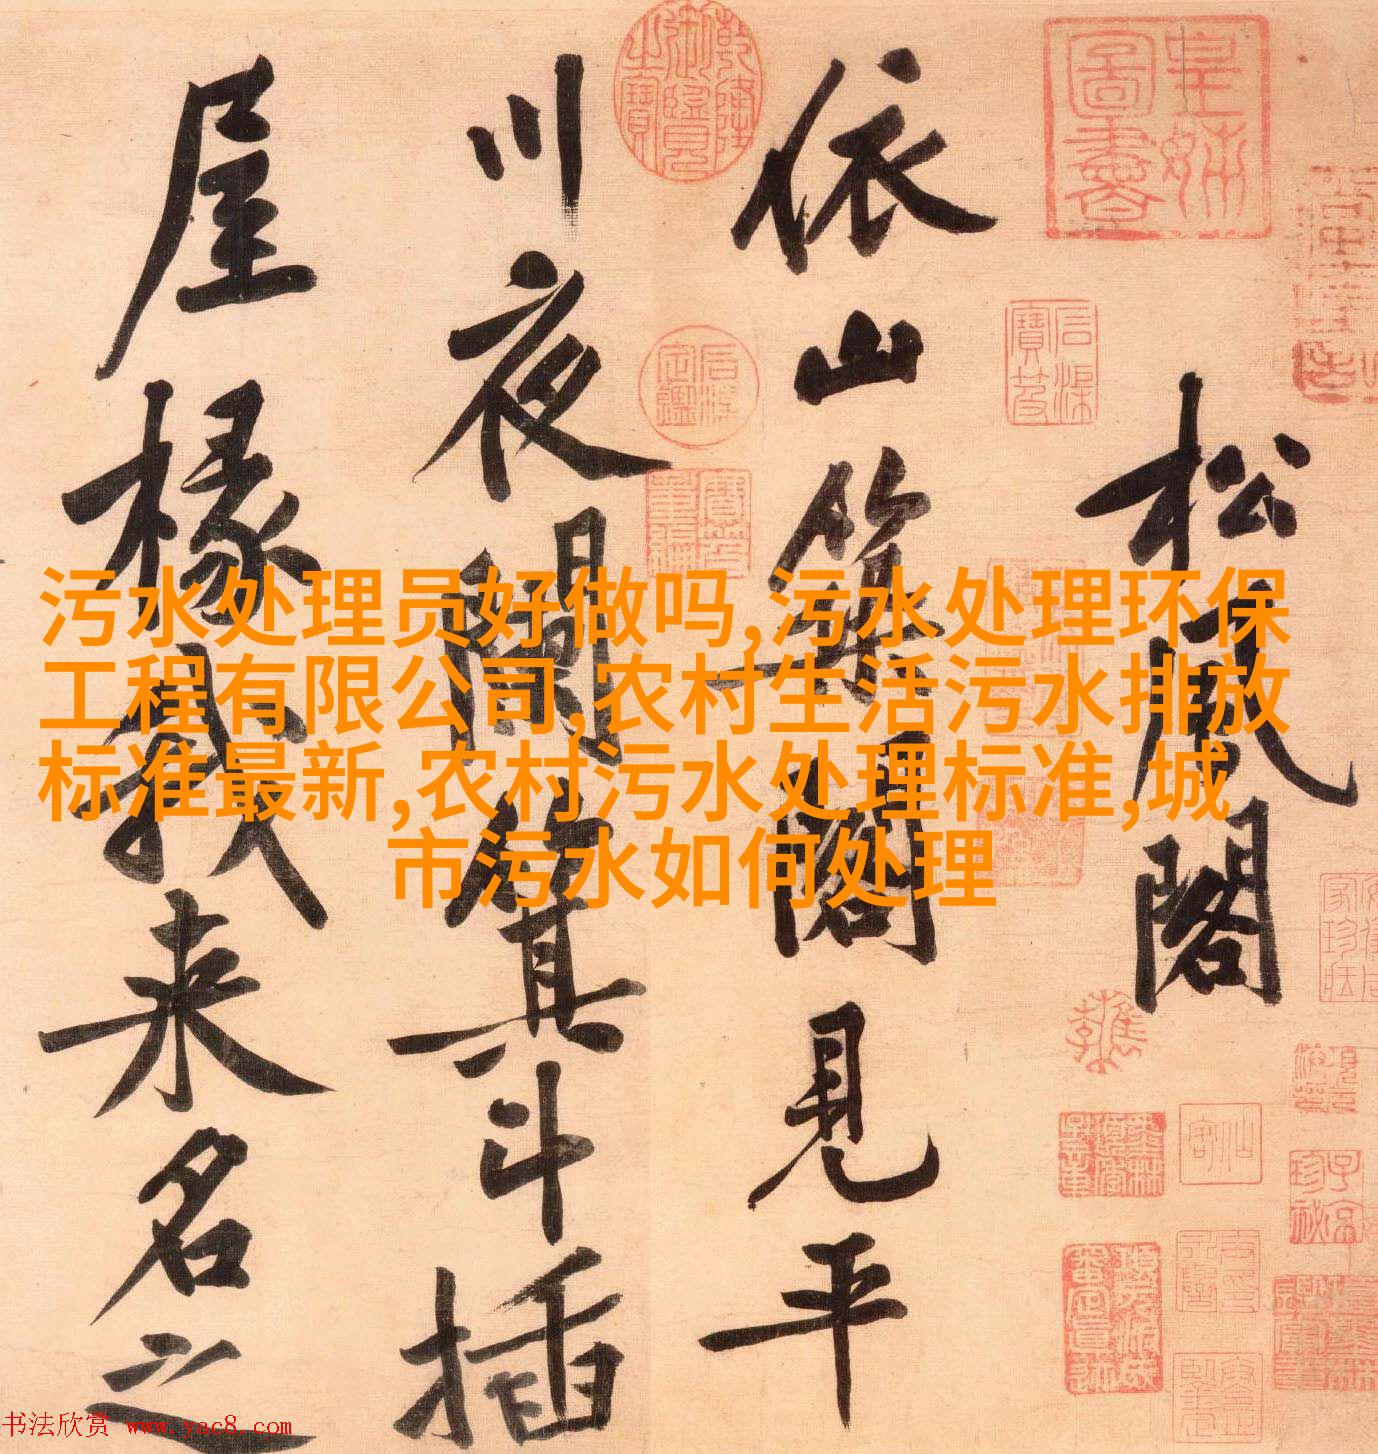 松風閣
依山築閣見平
川夜闌箕斗插
屋椽我来名之
污水处理员好做吗,污水处理环保
工程有限公司,农村生活污水排放
标准最新,农村污水处理标准,城
市污水如何处理
书法欣赏 www.yac8.com